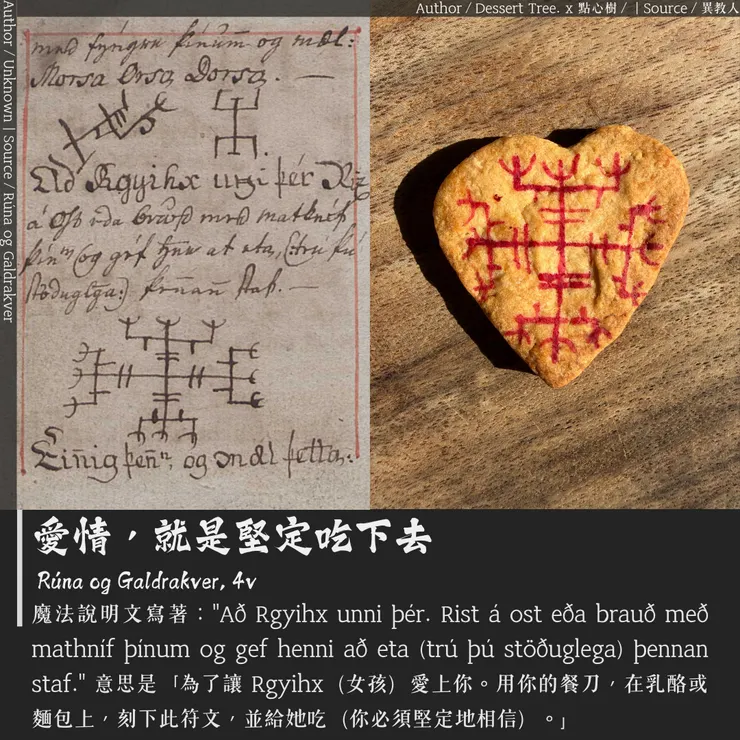 Author / Unknown | Source / Rúna og Galdrakver
Author / Dessert Tree. x 點心樹 / | Source / 異教人
og mæl:
Morsa Orsa Dorsa. —
Að Rgyihx unni þér
á Ost eda brauð med matkníf
og gef at eta, (:trú þú
stöðuglega:) þennan staf. —
Einnig og mæl þetta:
愛情，就是堅定吃下去
Rúna og Galdrakver, 4v
魔法說明文寫著："Að Rgyihx unni þér. Rist á ost eða brauð með
mathníf þínum og gef henni að eta (trú þú stöðuglega) þennan
staf." 意思是「為了讓 Rgyihx（女孩）愛上你。用你的餐刀，在乳酪或
麵包上，刻下此符文，並給她吃（你必須堅定地相信）。」